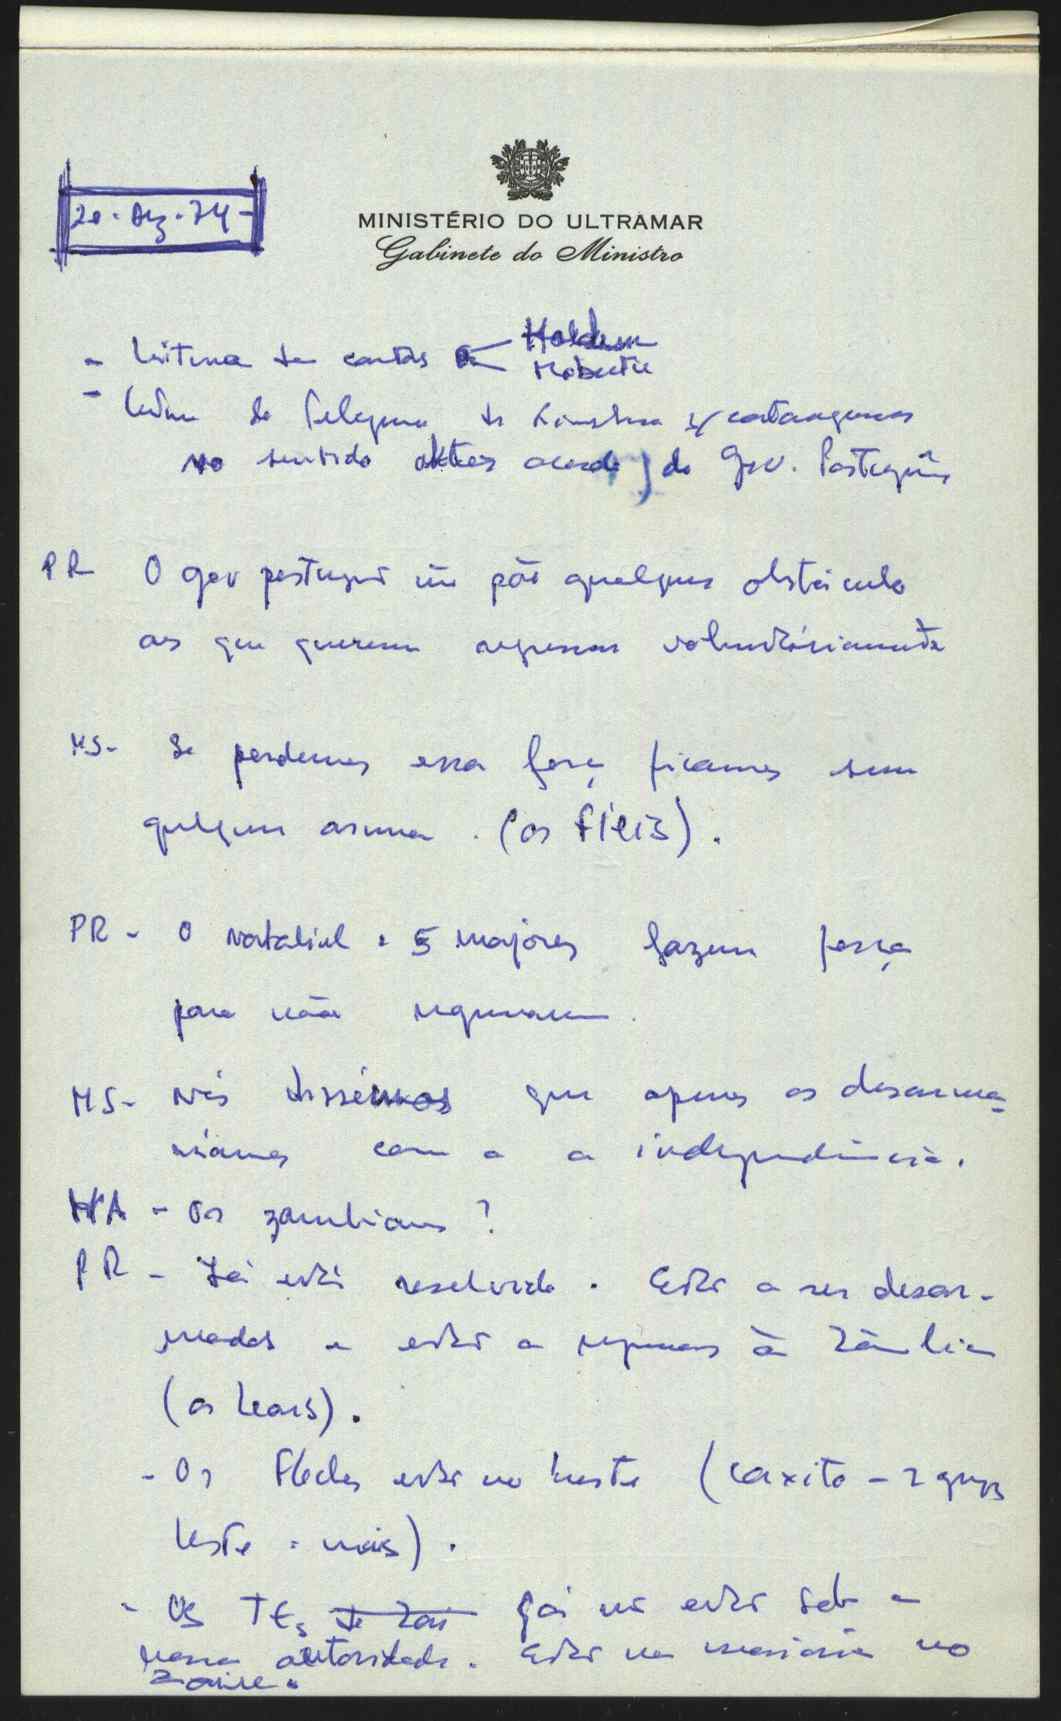 20. Dez. 74 -
MINISTÉRIO DO ULTRAMAR
Gabinete do Ministro
- leitura de cartas Holden
Mobutu
- de Kinshasa s/ catangueses
no sentido acordo do Gov. Português
PR O gov português não põe qualquer obstáculo
aos que querem regressar voluntàriamente
MS- Se perdemos essa força ficamos sem
qualquer arma. (os fiéis).
PR - O Nataliel e 5 majores fazem força
para não regressarem.
MS- Nós dissémos que apenas os desarma-
ríamos com a a independência.
- Os zambianos?
PR - Já está resolvido. Estão a ser desar-
mados e estão a regressar à Zâmbia
(os leais).
- Os Flechas estão no (Caxito - 2 grupos
Leste : mais).
- Os TEs já não estão sob a
nossa autoridade. Estão na maioria no
Zaire.